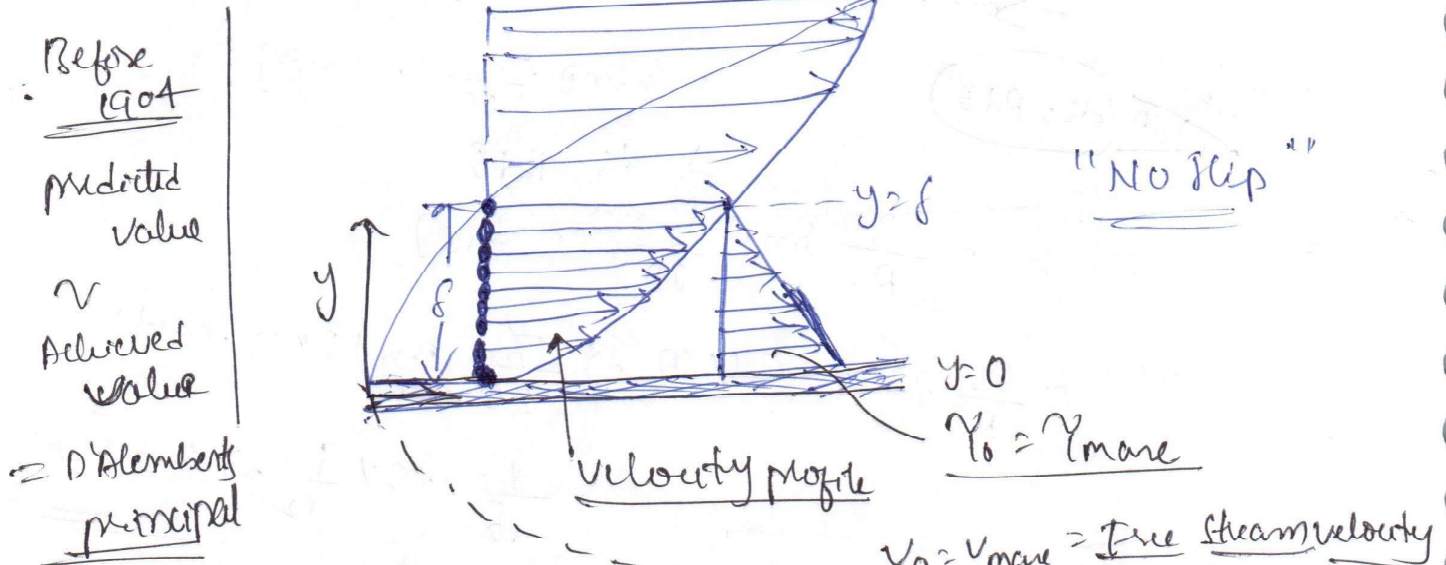 Before
1904
predicted
value
~
Achieved
value
= D'Alemberts
principal
"No slip"
y=δ
y
δ
y=0
τ₀ = τmaxe
velocity profile
V₀ = Vmaxe = Free Stream velocity